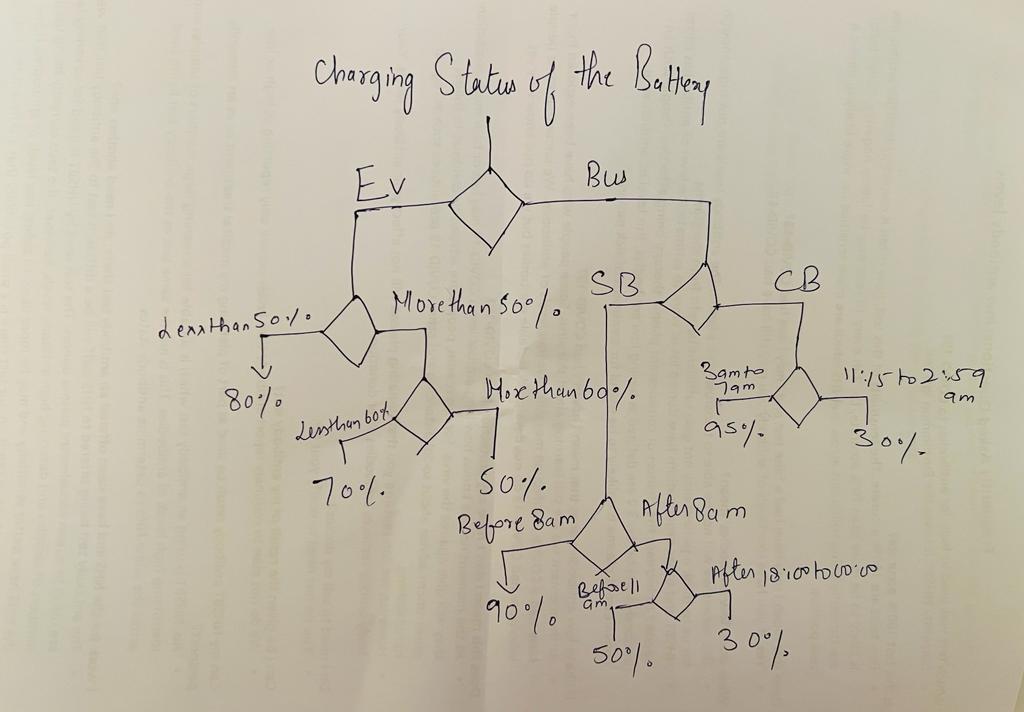 Charging Status of the Battery
Ev
Bus
SB
CB
Lessthan 50%
More than 50%
80%
Lessthan 60%
More than 60%
70%
50%
3am to
7am
95%
11:15 to 2:59
am
30%
Before 8am
After 8am
90%
Before 11
am
After 18:00 to 00:00
50%
30%